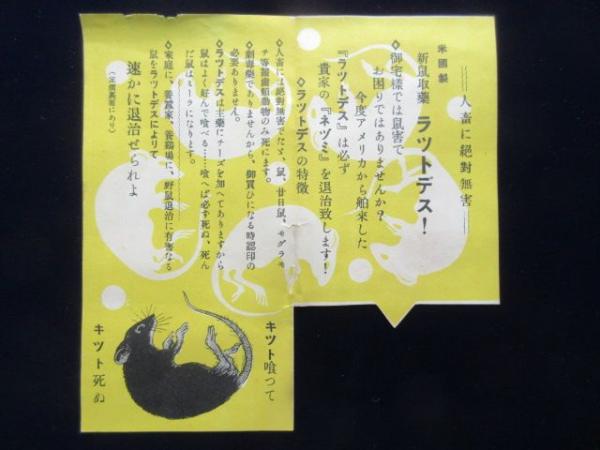 米國製
――人畜に絶對無害――
新鼠取藥 ラツトデス!
◇御宅樣では鼠害で
お困りではありませんか?
今度アメリカから舶來した
『ラツトデス』は必ず
貴家の『ネヅミ』を退治致します!
◇ラツトデスの特徴
◇人畜には絕對無害でたゞ、鼠、廿日鼠、モグラモ
チ等齧齒類動物のみ死にます。
◇劇毒藥でありませんから、御買ひになる時認印の
必要ありません。
◇ラツトデスは主藥にチーズを加へてありますから
鼠はよく好んで喰べる……喰へば必ず死ぬ、死ん
だ鼠はミーラになります。
◇家庭に、養蠶家、養鷄場に、野鼠退治に有害なる
鼠をラツトデスによりて
速かに退治せられよ
(定價裏面にあり)
キツト喰つて
キツト死ぬ